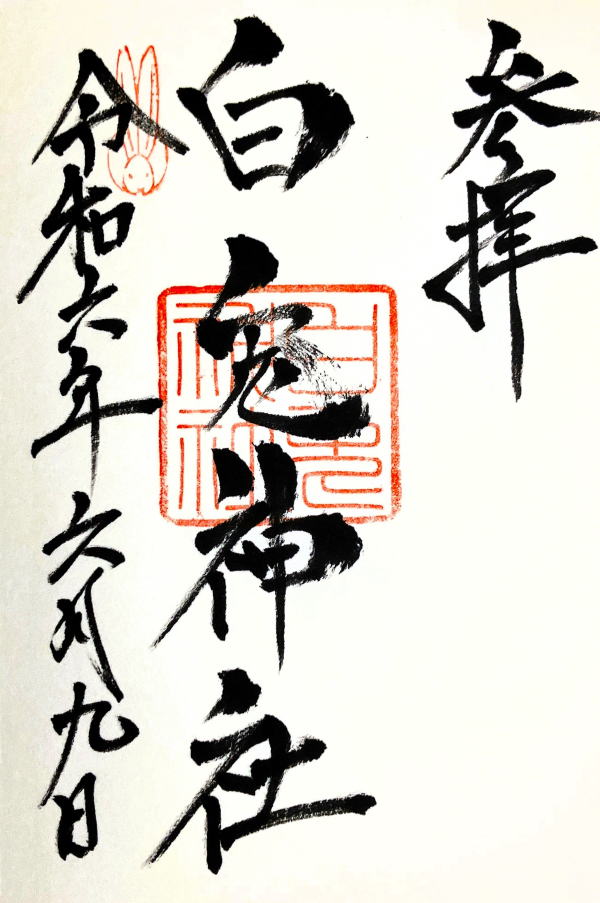 参拝
白兎神社
白兎神社
令和六年六月九日